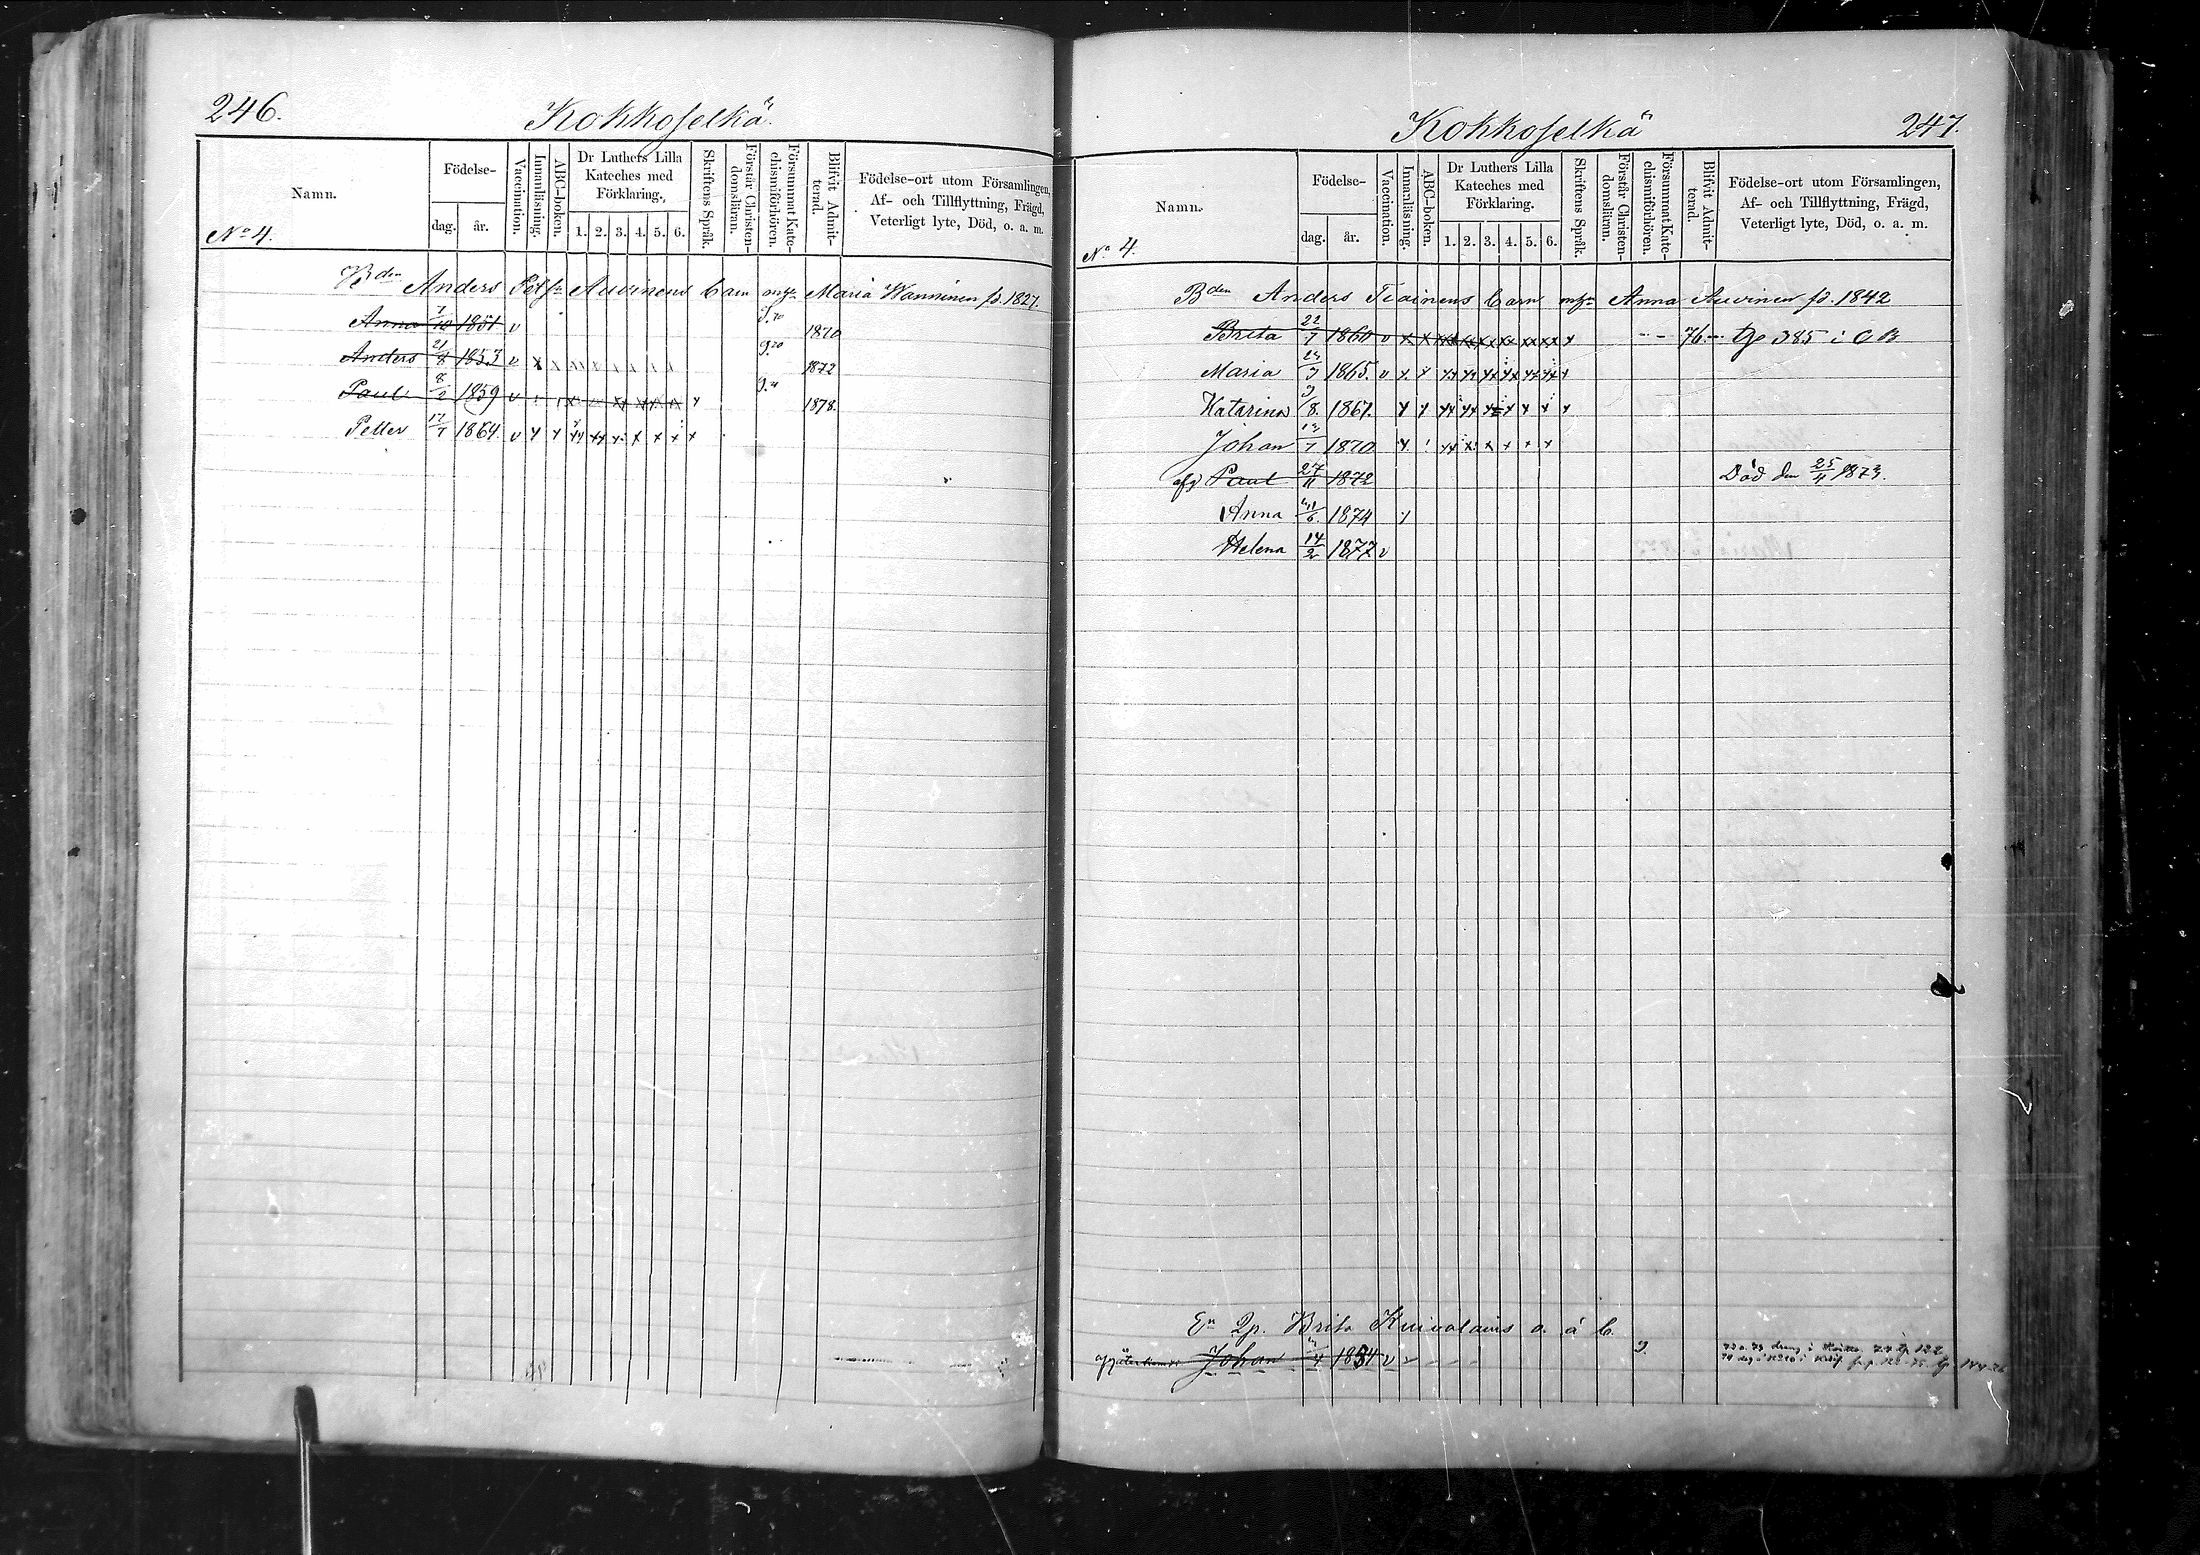 246.
Kokkoselkä
Namn.
Födelse-
dag.
år.
Vaccination.
Innanläsning.
ABC-boken.
Dr Luthers Lilla
Kateches med
Förklaring.
1. 2. 3. 4. 5. 6.
Skriftens Språk.
Förstår Christen-
domsläran.
Försummat Kate-
chismiförhören.
Blifvit Admit-
terad.
Födelse-ort utom Församlingen,
Af- och Tillflyttning, Frägd,
Veterligt lyte, Död, o. a. m.
No 4.
Bden Anders Petsn Auvinens barn m. Maria Wänninen f. 1827
Anna 7/10 1851 v 1870
Anders 21/8 1853 v 1872
Paul 8/2 1859 v 1878.
Petter 17/7 1864 v
Kokkoselkä
247.
Namn.
Födelse-
dag.
år.
Vaccination.
Innanläsning.
ABC-boken.
Dr Luthers Lilla
Kateches med
Förklaring.
1. 2. 3. 4. 5. 6.
Skriftens Språk.
Förstår Christen-
domsläran.
Försummat Kate-
chismiförhören.
Blifvit Admit-
terad.
Födelse-ort utom Församlingen,
Af- och Tillflyttning, Frägd,
Veterligt lyte, Död, o. a. m.
No 4.
Bden Anders Tiainens barn m. Anna Auvinen f. 1842
Brita 22/7 1860 v 76 385 i CB
Maria 23/3 1865. v
Katarina 3/8. 1867.
Johan 13/7 1870
Paul 27/11 1872 Död den 25/4 1873.
Anna 6. 1874
Helena 14/2 1877 v
En Qp. Brita Kuivalains o. ä b.
Johan 4 1854 v